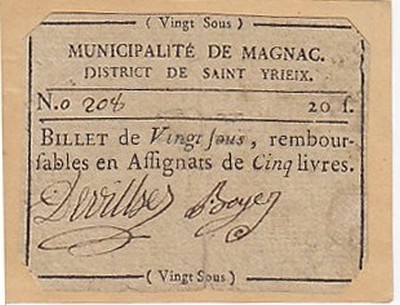 ( Vingt Sous )
MUNICIPALITÉ DE MAGNAC.
DISTRICT DE SAINT YRIEIX.
N.o 208 20 ſ.
BILLET de Vingt ſous, rembour-
ſables en Aſſignats de Cinq livres.
Boyer
( Vingt Sous )